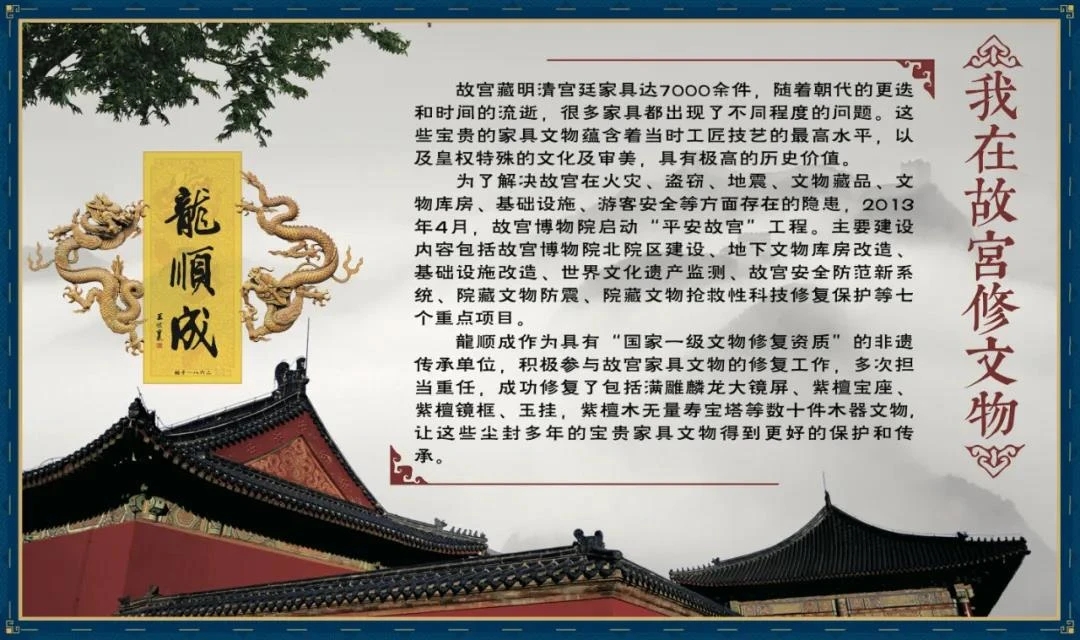 我在故宫修文物
故宫藏明清宫廷家具达7000余件，随着朝代的更迭
和时间的流逝，很多家具都出现了不同程度的问题。这
些宝贵的家具文物蕴含着当时工匠技艺的最高水平，以
及皇权特殊的文化及审美，具有极高的历史价值。
为了解决故宫在火灾、盗窃、地震、文物藏品、文
物库房、基础设施、游客安全等方面存在的隐患，2013
年4月，故宫博物院启动“平安故宫”工程。主要建设
内容包括故宫博物院北院区建设、地下文物库房改造、
基础设施改造、世界文化遗产监测、故宫安全防范新系
统、院藏文物防震、院藏文物抢救性科技修复保护等七
个重点项目。
龍顺成作为具有“国家一级文物修复资质”的非遗
传承单位，积极参与故宫家具文物的修复工作，多次担
当重任，成功修复了包括满雕麟龙大镜屏、紫檀宝座、
紫檀镜框、玉挂，紫檀木无量寿宝塔等数十件木器文物，
让这些尘封多年的宝贵家具文物得到更好的保护和传
承。
龍順成
始于一八六二